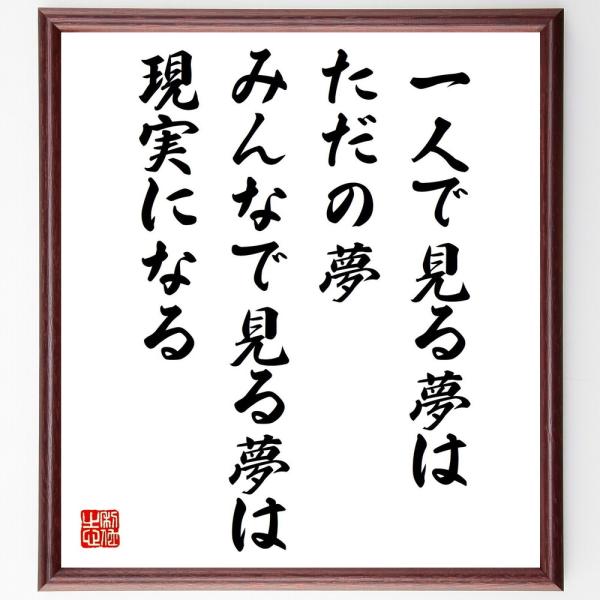 一人で見る夢は
ただの夢
みんなで見る夢は
現実になる